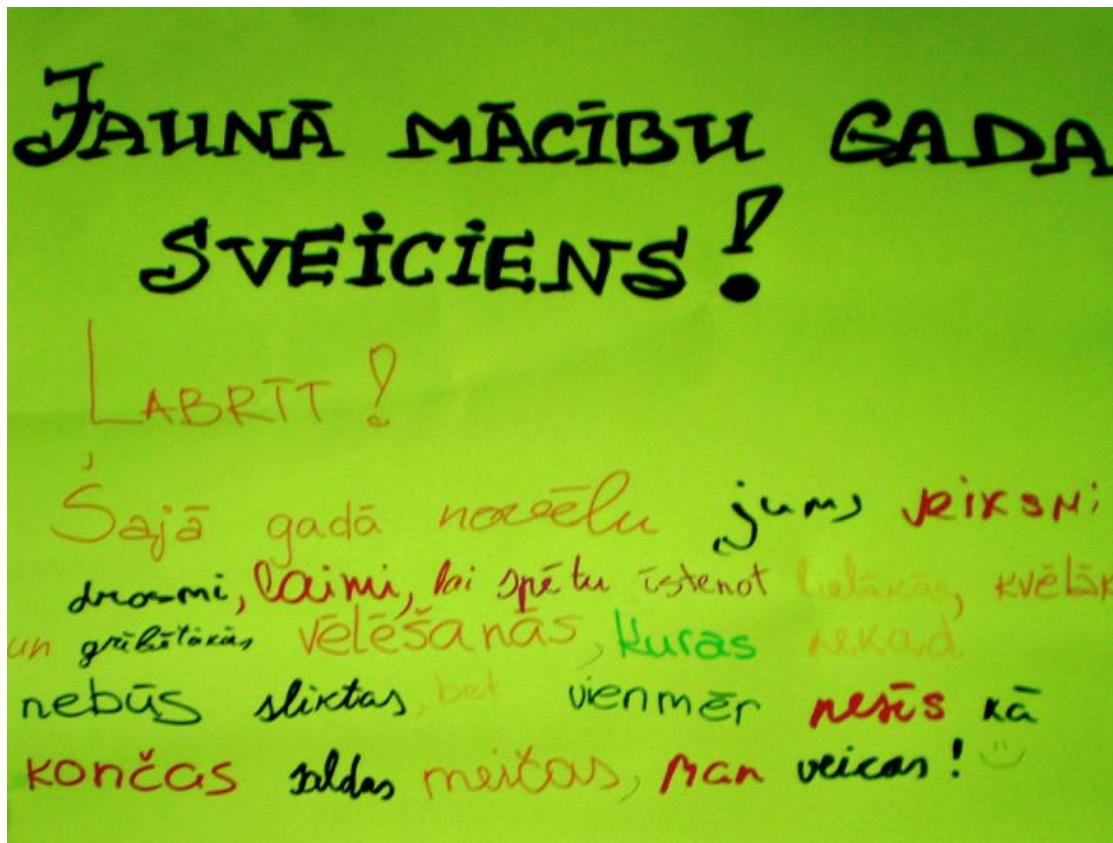 JAUNĀ MĀCĪBU GADA
SVEICIENS!
LABRĪT!
Šajā gadā novēlu jums veiksmi
drosmi, laimi, lai spētu īstenot lielākās, kvēlāk
un gribētākās vēlēšanās, kuras nekad
nebūs sliktas, bet vienmēr nesīs kā
končas saldas meičas, man veicas!